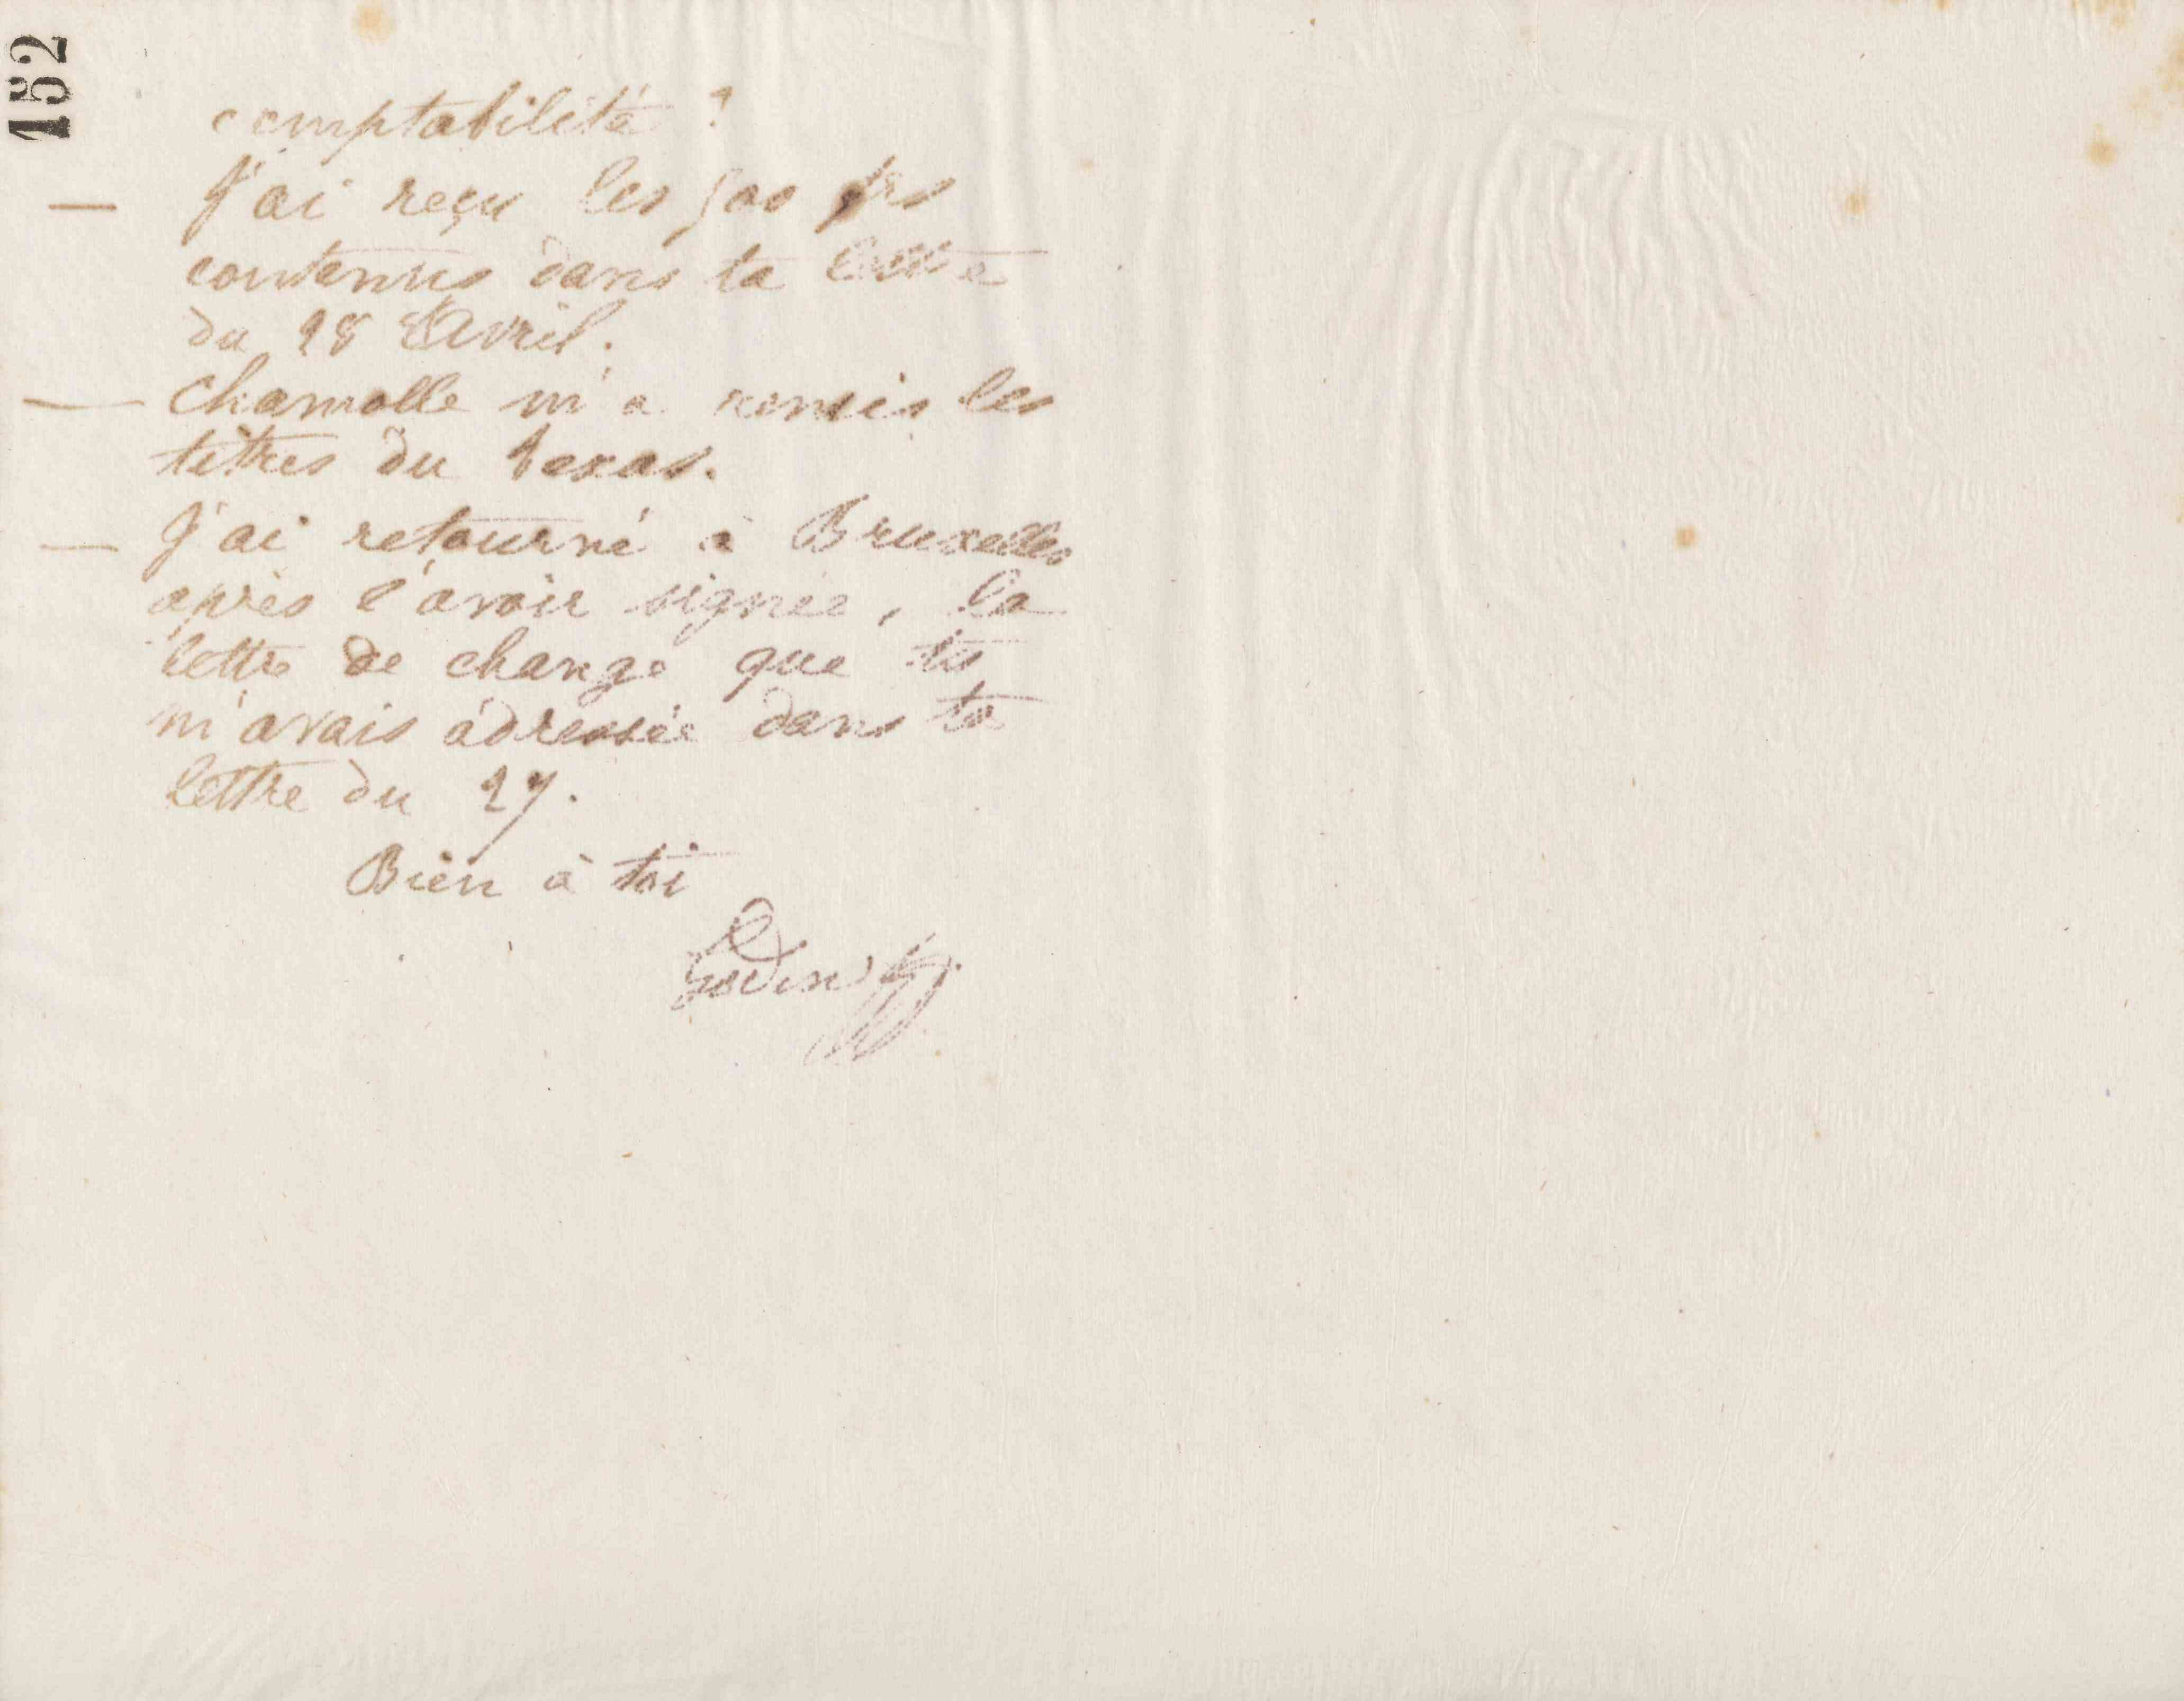 152
comptabilité ?
— J'ai reçu les 500 frs
contenus dans ta lettre
du 28 Avril.
— Chamolle m'a remis les
titres du Texas.
— J'ai retourné à Bruxelles
après l'avoir signée, la
lettre de change que tu
m'avais adressée dans ta
lettre du 27.
Bien à toi
Godin